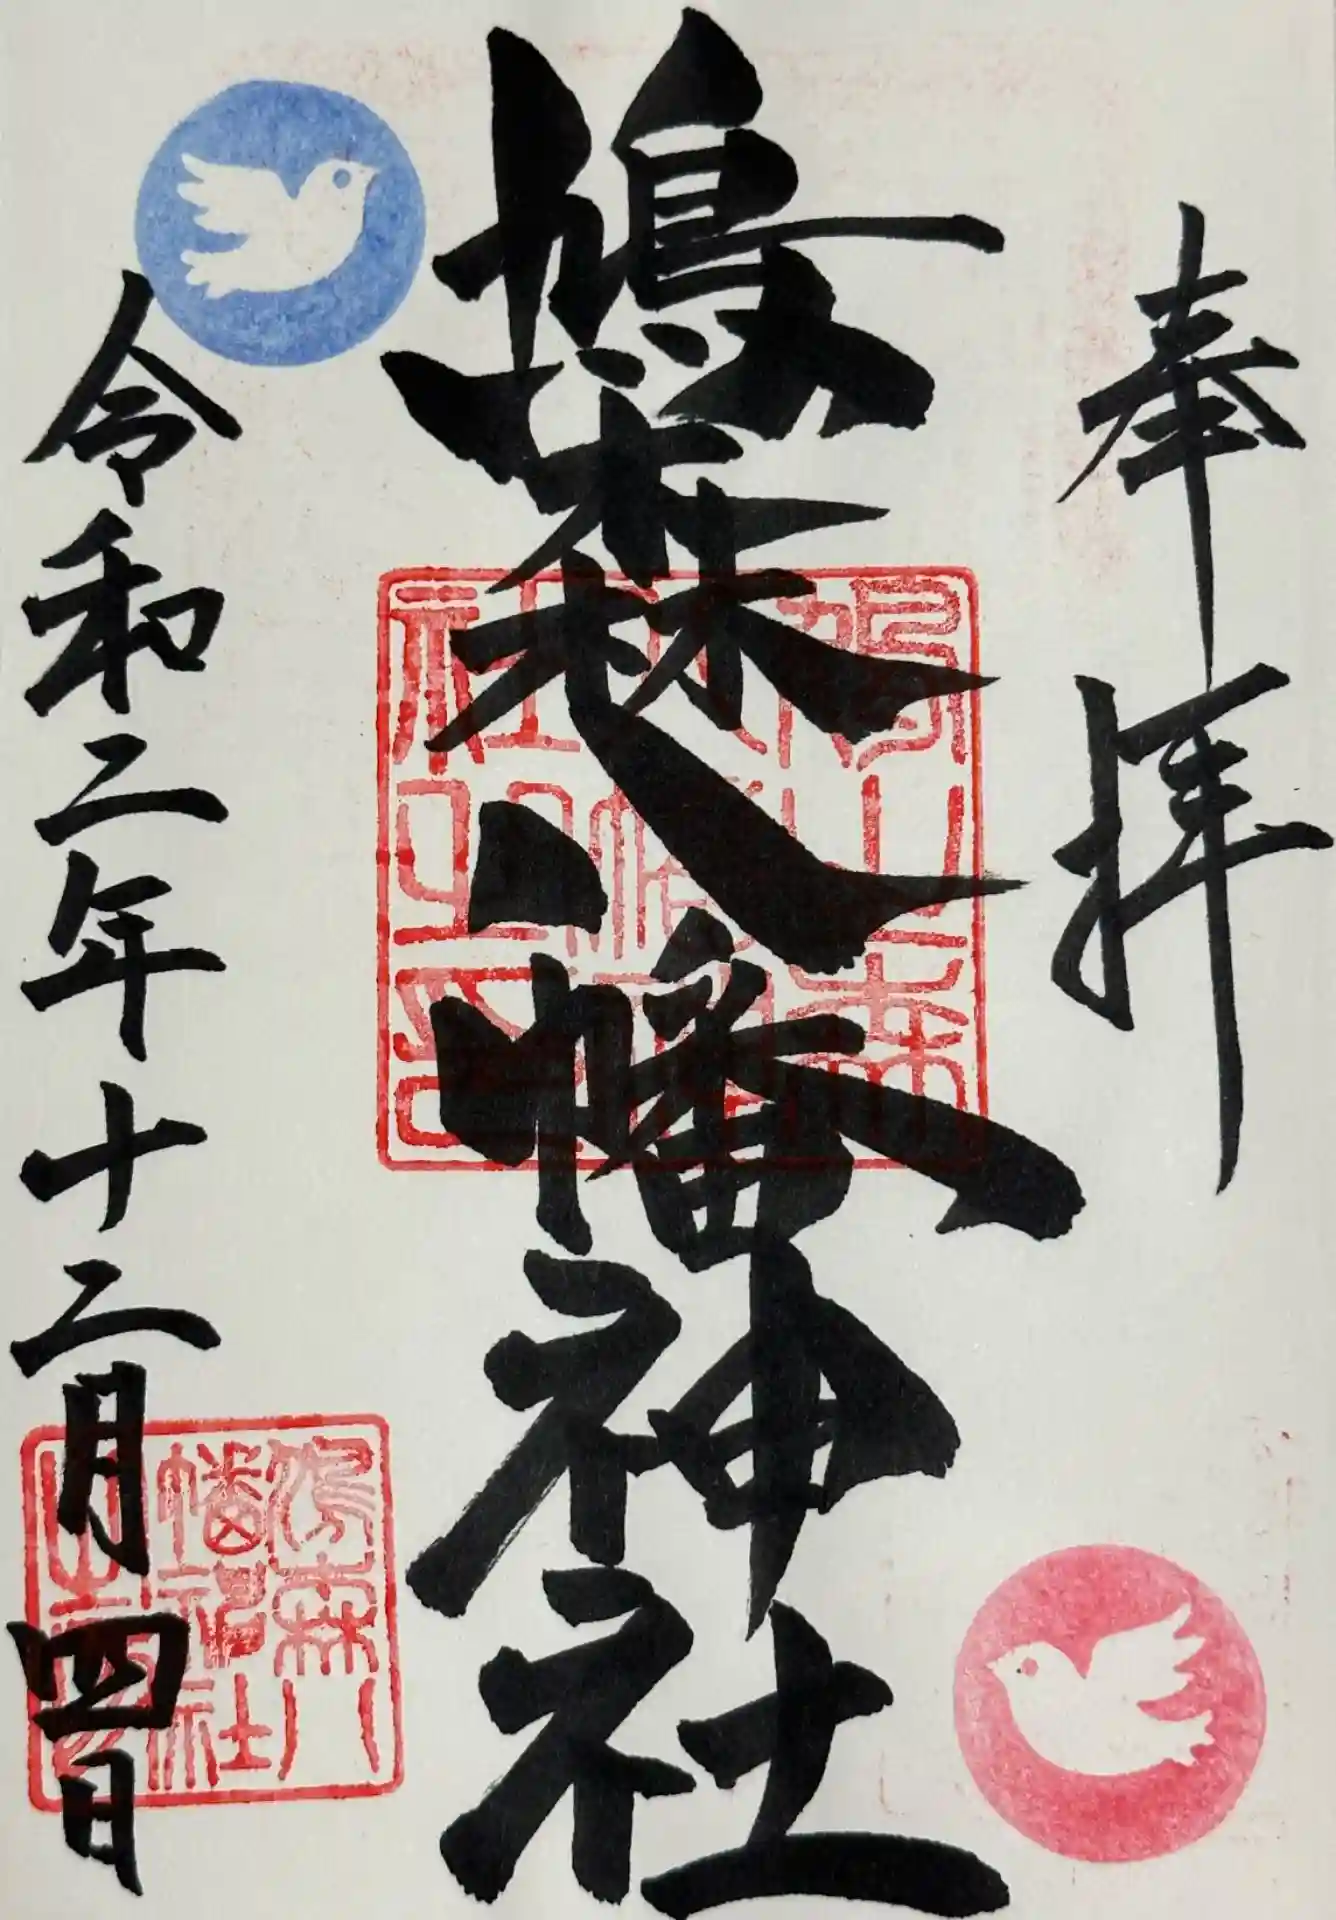 奉拝
鳩森八幡神社
令和二年十二月四日
鳩森八幡神社之印